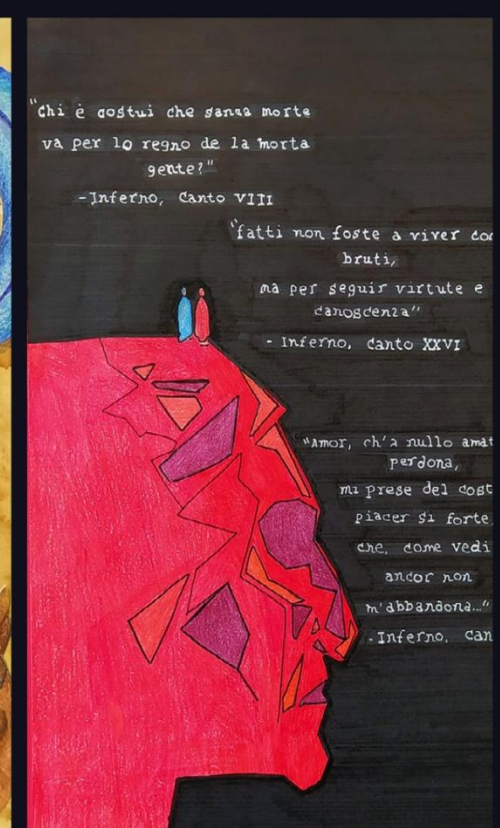 "Chi è costui che sanza morte
va per lo regno de la morta
gente?"
-Inferno, Canto VIII
"fatti non foste a viver co
bruti,
ma per seguir virtute e
canoscenza"
- Inferno, Canto XXVI
"Amor, ch'a nullo amat
perdona,
mi prese del cost
piacer sì forte
che, come vedi
ancor non
m'abbandona..."
-Inferno, Can